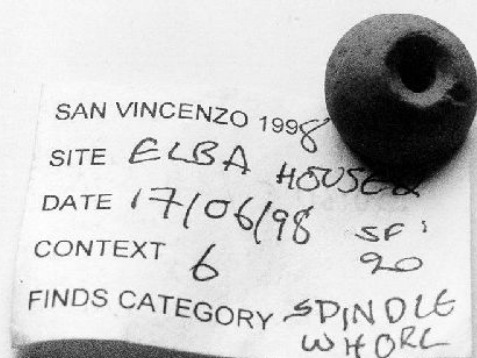 SAN VINCENZO 1998
SITE ELBA HOUSE
DATE 17/06/98 SF
CONTEXT 6 20
FINDS CATEGORY SPINDLE
WHORL